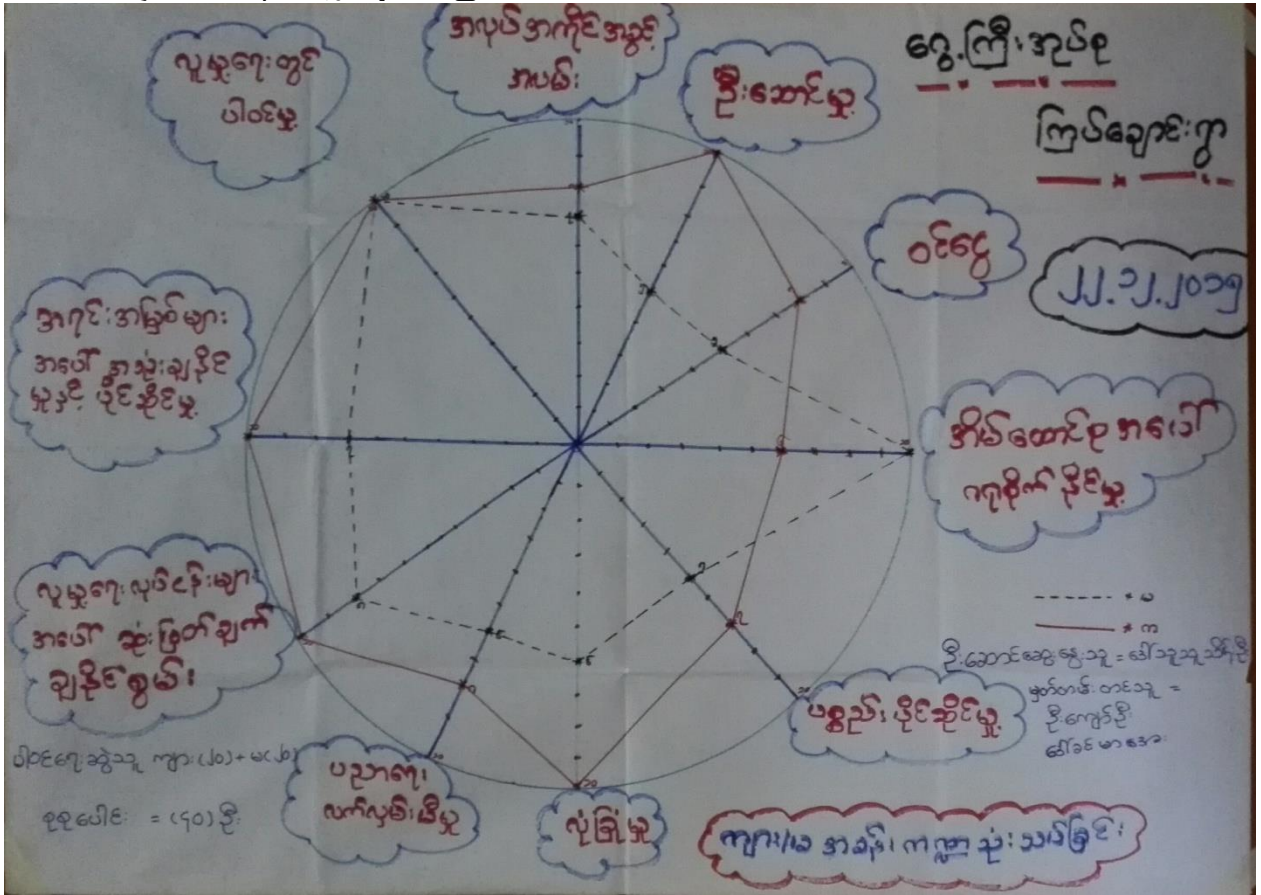 အလုပ်အကိုင်အခွင့်
အလမ်း
ဦးဆောင်မှု့
လူမှု့ရေးတွင်
ပါဝင်မှု့
ငွေ့ကြီးအုပ်စု
ကြပ်ချောင်းရွာ
ဝင်ငွေ
၂၂.၁၂.၂၀၁၅
အရင်းအမြစ်များ
အပေါ် အသုံးချနိုင်
မှုနှင့် ပိုင်ဆိုင်မှု့
အိမ်ထောင်စုအပေါ်
ဂရုစိုက်နိုင်မှု့
လူမှု့ရေးလုပ်ငန်းများ
အပေါ် ဆုံးဖြတ်ချက်
ချနိုင်စွမ်း
* မ
* က
ဦးဆောင်ဆွေးနွေးသူ = ဒေါ်သူသူသိန်းဦး
မှတ်တမ်းတင်သူ =
ဦးကျော်ဦး
ပစ္စည်းပိုင်ဆိုင်မှု့
ပါဝင်ဆွေးနွေးသူ ကျား(၂၀)+မ(၂၀)
စုစုပေါင်း = (၄၀) ဦး
ပညာရေး
လက်လှမ်းမီမှု
လုံခြုံမှု
ကျား/မ အခန်းကဏ္ဍသုံးသပ်ခြင်း